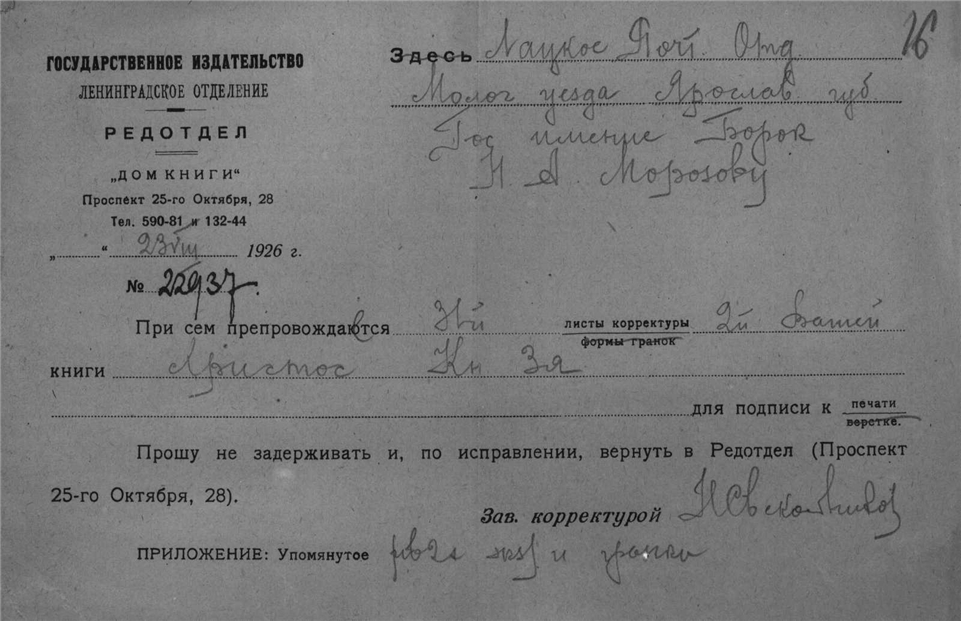 16
ГОСУДАРСТВЕННОЕ ИЗДАТЕЛЬСТВО
ЛЕНИНГРАДСКОЕ ОТДЕЛЕНИЕ
РЕДОТДЕЛ
„ДОМ КНИГИ“
Проспект 25-го Октября, 28
Тел. 590-81 и 132-44
„ “ 23 VIII 1926 г.
№ 22937.
Здесь Лацкое Почт. Отд.
Молог уезда Ярослав губ.
Гос имение Борок
Н. А. Морозову
При сем препровождается листы корректуры 2й Вашей
формы гранок
книги Христос Кн 3я
для подписи к печати
верстке.
Прошу не задерживать и, по исправлении, вернуть в Редотдел (Проспект
25-го Октября, 28).
Зав. корректурой
ПРИЛОЖЕНИЕ: Упомянутое и гранки